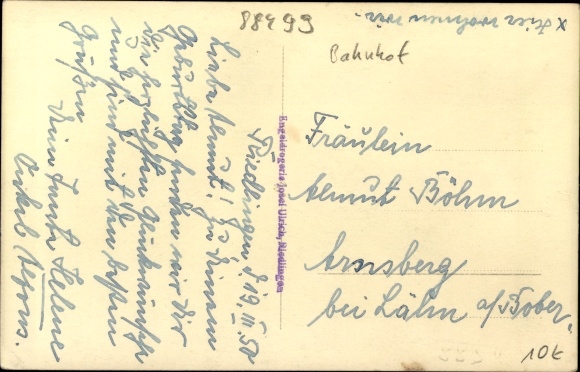 88493
x Hier wohnen wir.
Bahnhof
Riedlingen d 19. III. 50
Liebe Almut! Zu Deinem
Geburtstag senden wir Dir
die herzlichsten Glückwünsche
und sind mit den besten
Grüßen
Dein Tante Helene
Onkel Alfons.
Engeldrogerie Josef Ulrich, Riedlingen
Fräulein
Almut Böhm
Arnsberg
bei Lähn a/Bober.
10€